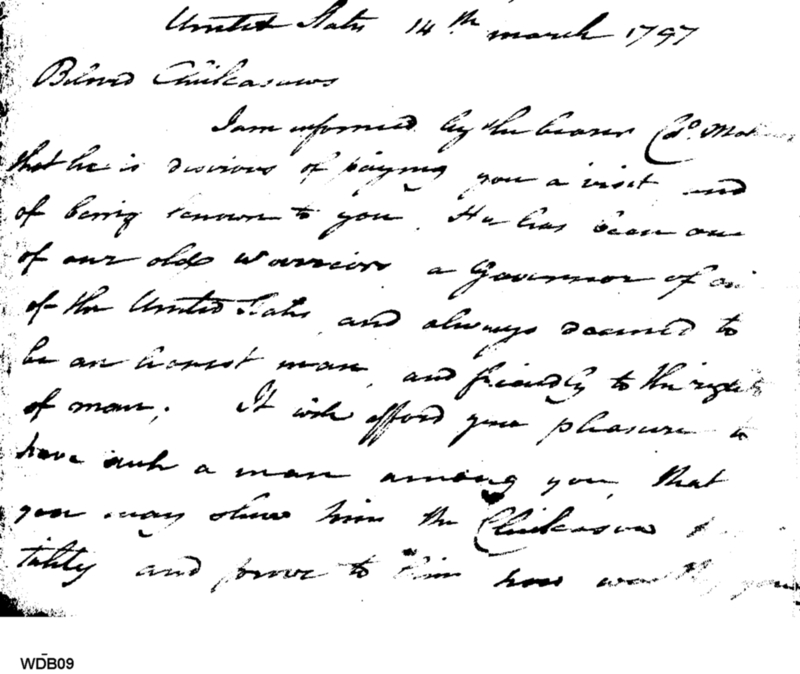 United States 14th march 1797
Beloved Chickasaws
I am informed by the bearer Colo.
that he is desirous of paying you a visit and
of being known to you. He has been one
of our old warriors a Governor of
of the United States, and always deemed to
be an honest man, and friendly to the rights
of man; It will afford you pleasure to
have such a man among you, that
you may shew him the Chickasaw
tality and prove to him how worthy you
WDB09